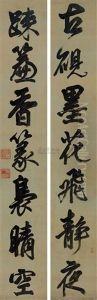 古硯墨花飛靜夜
疎簾香篆裊晴空